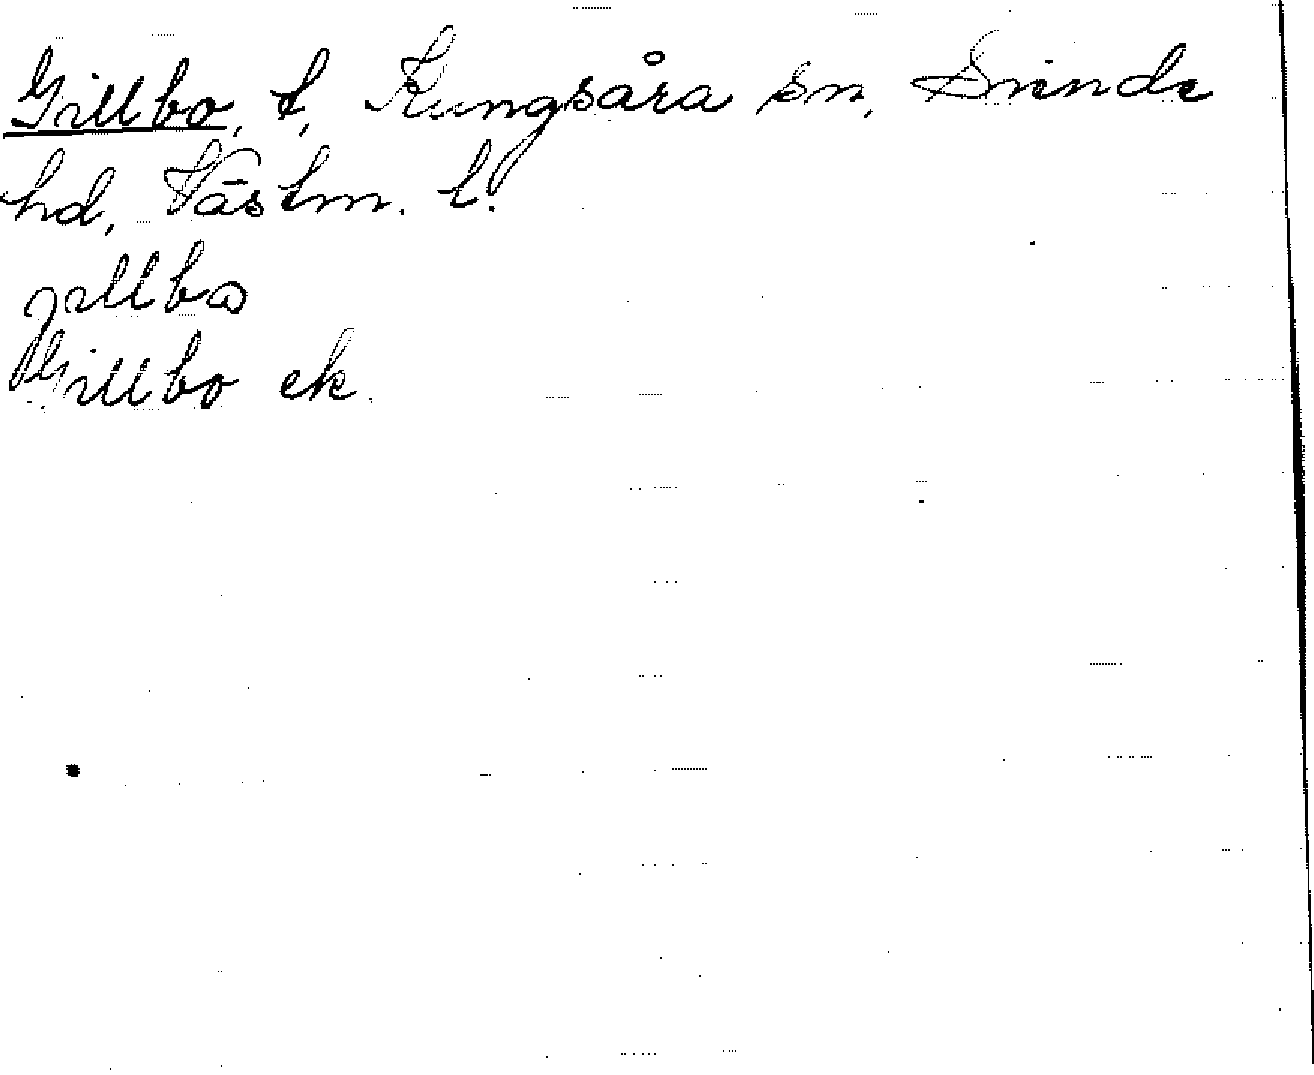 Gillbo, t, Kungsåra sn, Siende
hd, Västm. l.
jillbo
Gillbo ek.